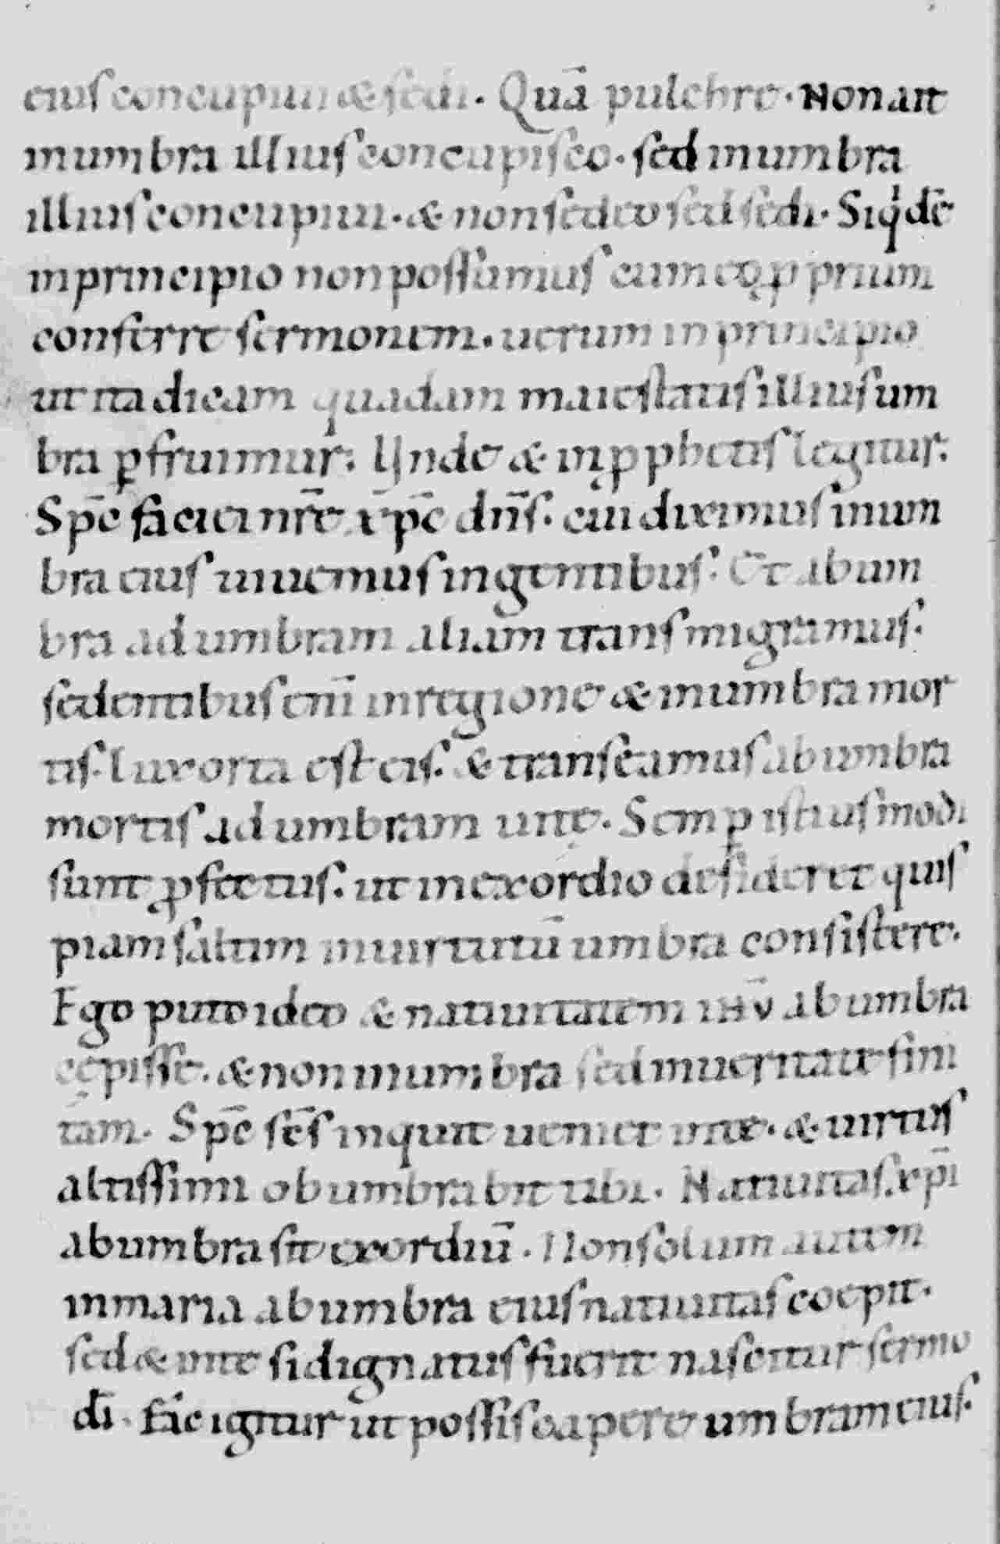 eius concupiui & sedi. Quā pulchre. Non ait
in umbra illius concupisco. sed in umbra
illius concupiui. & non sedeo sed sedi. Siqͥdē
in principio non possumus cum eo ꝓprium
conferre sermonem. uerum in principio
ut ita dicam quadam maiestatis illius um
bra ꝑfruimur. Unde & in ꝓphetis legitur.
Spc̄ faciei nr̄e xp̄c dn̄s. cui diximus in um
bra eius uiuemus in gentibus. Et ab um
bra ad umbram aliam transmigramus.
sedentibus eni̅ in regione & in umbra mor
tis. lux orta est eis. & transeamus ab umbra
mortis ad umbram uitę. Semꝑ istius modi
sunt ꝓfectus. ut in exordio desideret quis
piam saltim in uirtutū umbra consistere.
Ego puto ideo & natiuitatem ihū ab umbra
cępisse. & non in umbra sed in ueritate fini
tam. Spc̄ sc̄s inquit ueniet in te. & uirtus
altissimi obumbrabit tibi. Natiuitas xp̄i
ab umbra sit exordiū. Non solum autem
in maria ab umbra eius natiuitas coepit.
sed & in te si dignatus fuerit nascitur sermo
dī. Fac igitur ut possis capere umbram eius.